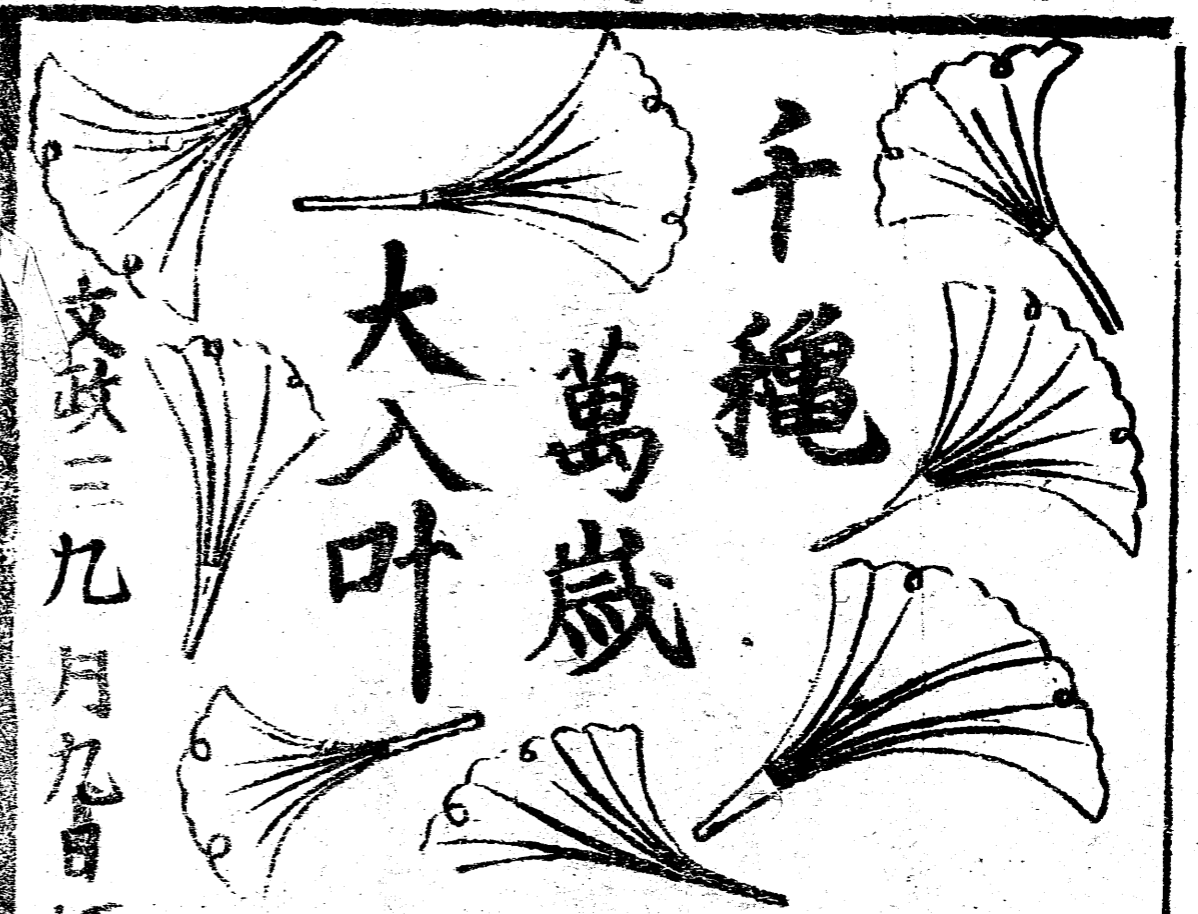 千穐
萬歳
大入叶
文政三九月九日